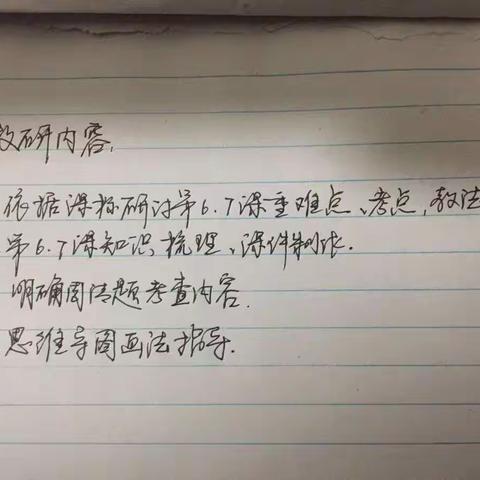 教研内容,
依据课标研讨第6.7课重难点、考点,教法
第6.7课知识梳理、课件制作.
明确周清题考查内容.
思维导图画法指导.